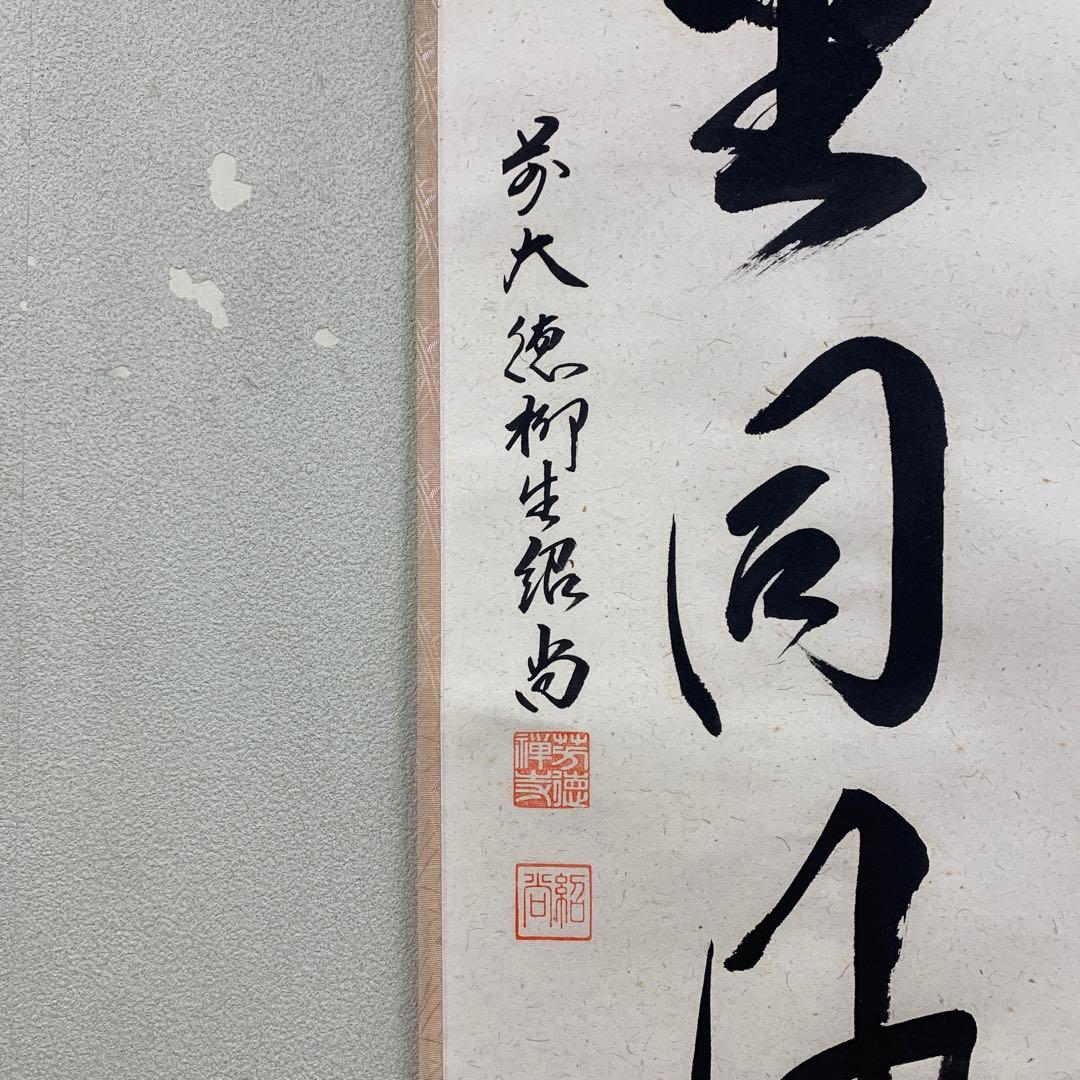 同
前大徳柳生紹尚
芳徳禅寺
紹尚